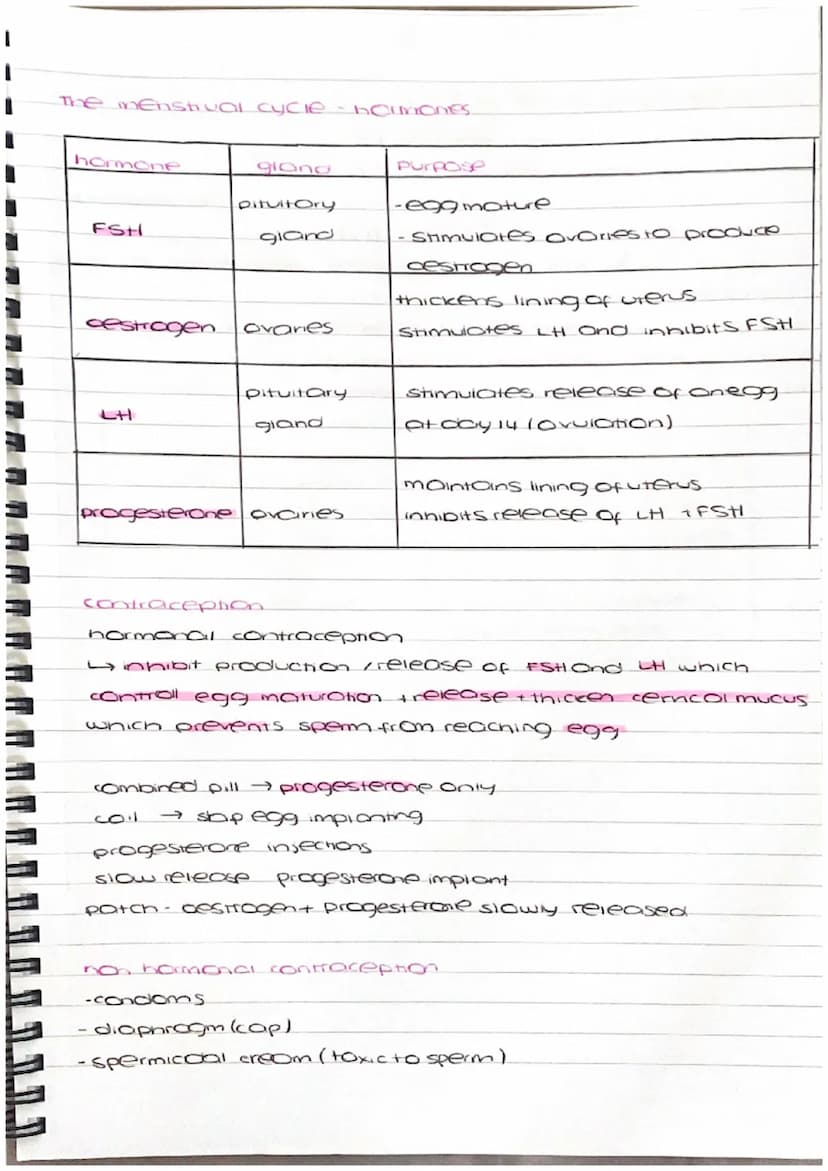 The menstrual cycle - hormones
hormone gland purpose
FSH pituitary gland -egg mature
- stimulates ovaries to produce
oestrogen
oestrogen ovaries thickens lining of uterus
stimulates LH and inhibits FSH
LH pituitary gland stimulates release of an egg
at day 14 (ovulation)
progesterone ovaries maintains lining of uterus
inhibits release of LH + FSH
contraception
hormonal contraception
↳ inhibit production / release of FSH and LH which
controll egg maturation + release + thicken cervical mucus
which prevents sperm from reaching egg
combined pill → progesterone only
coil → stop egg implanting
progesterone injections
slow release progesterone implant
patch - oestrogen + progesterone slowly released
non hormonal contraception
-condoms
- diaphragm (cap)
- spermicidal cream (toxic to sperm)